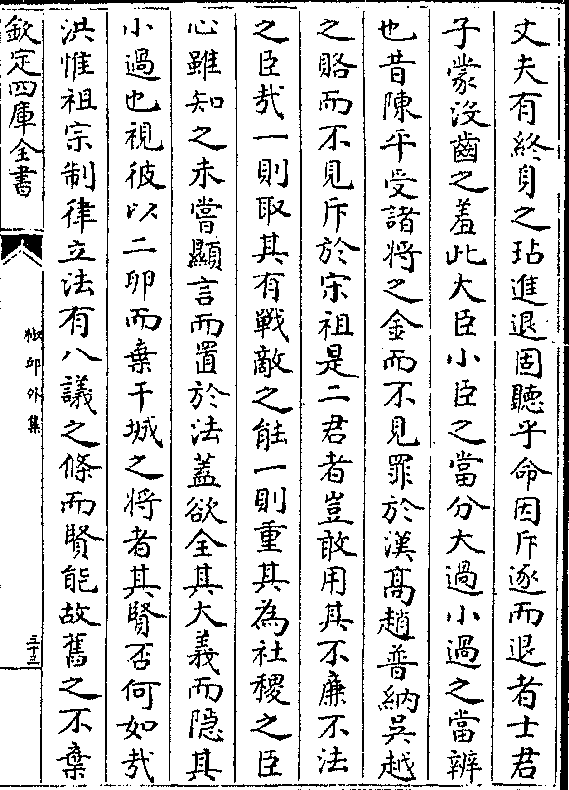 丈夫有終身之玷進退固聽乎命因斥逐而退者士君
子蒙沒齒之羞此大臣小臣之當分大過小過之當辨
也昔陳平受諸將之金而不見罪於漢髙趙普納吳越
之賂而不見斥於宋祖是二君者豈敢用其不廉不法
之臣㦲一則取其有戰敵之能一則重其為社稷之臣
心雖知之未嘗顯言而置於法蓋欲全其大義而隠其
小過也視彼以二卵而棄干城之将者其賢否何如㦲
洪惟祖宗制律立法有八議之條而賢能故舊之不棄
欽定四庫全書
椒邱外集
三十三